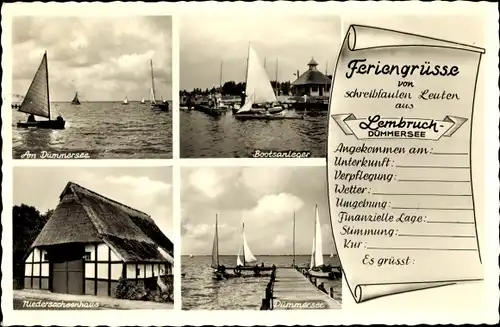 Am Dümmersee
Bootsanleger
Niedersachsenhaus
Dümmersee
Feriengrüsse
von
schreibfaulen Leuten
aus
Lembruch-
DÜMMERSEE
Angekommen am:
Unterkunft:
Verpflegung:
Wetter:
Umgebung:
Finanzielle Lage:
Stimmung:
Kur:
Es grüsst: